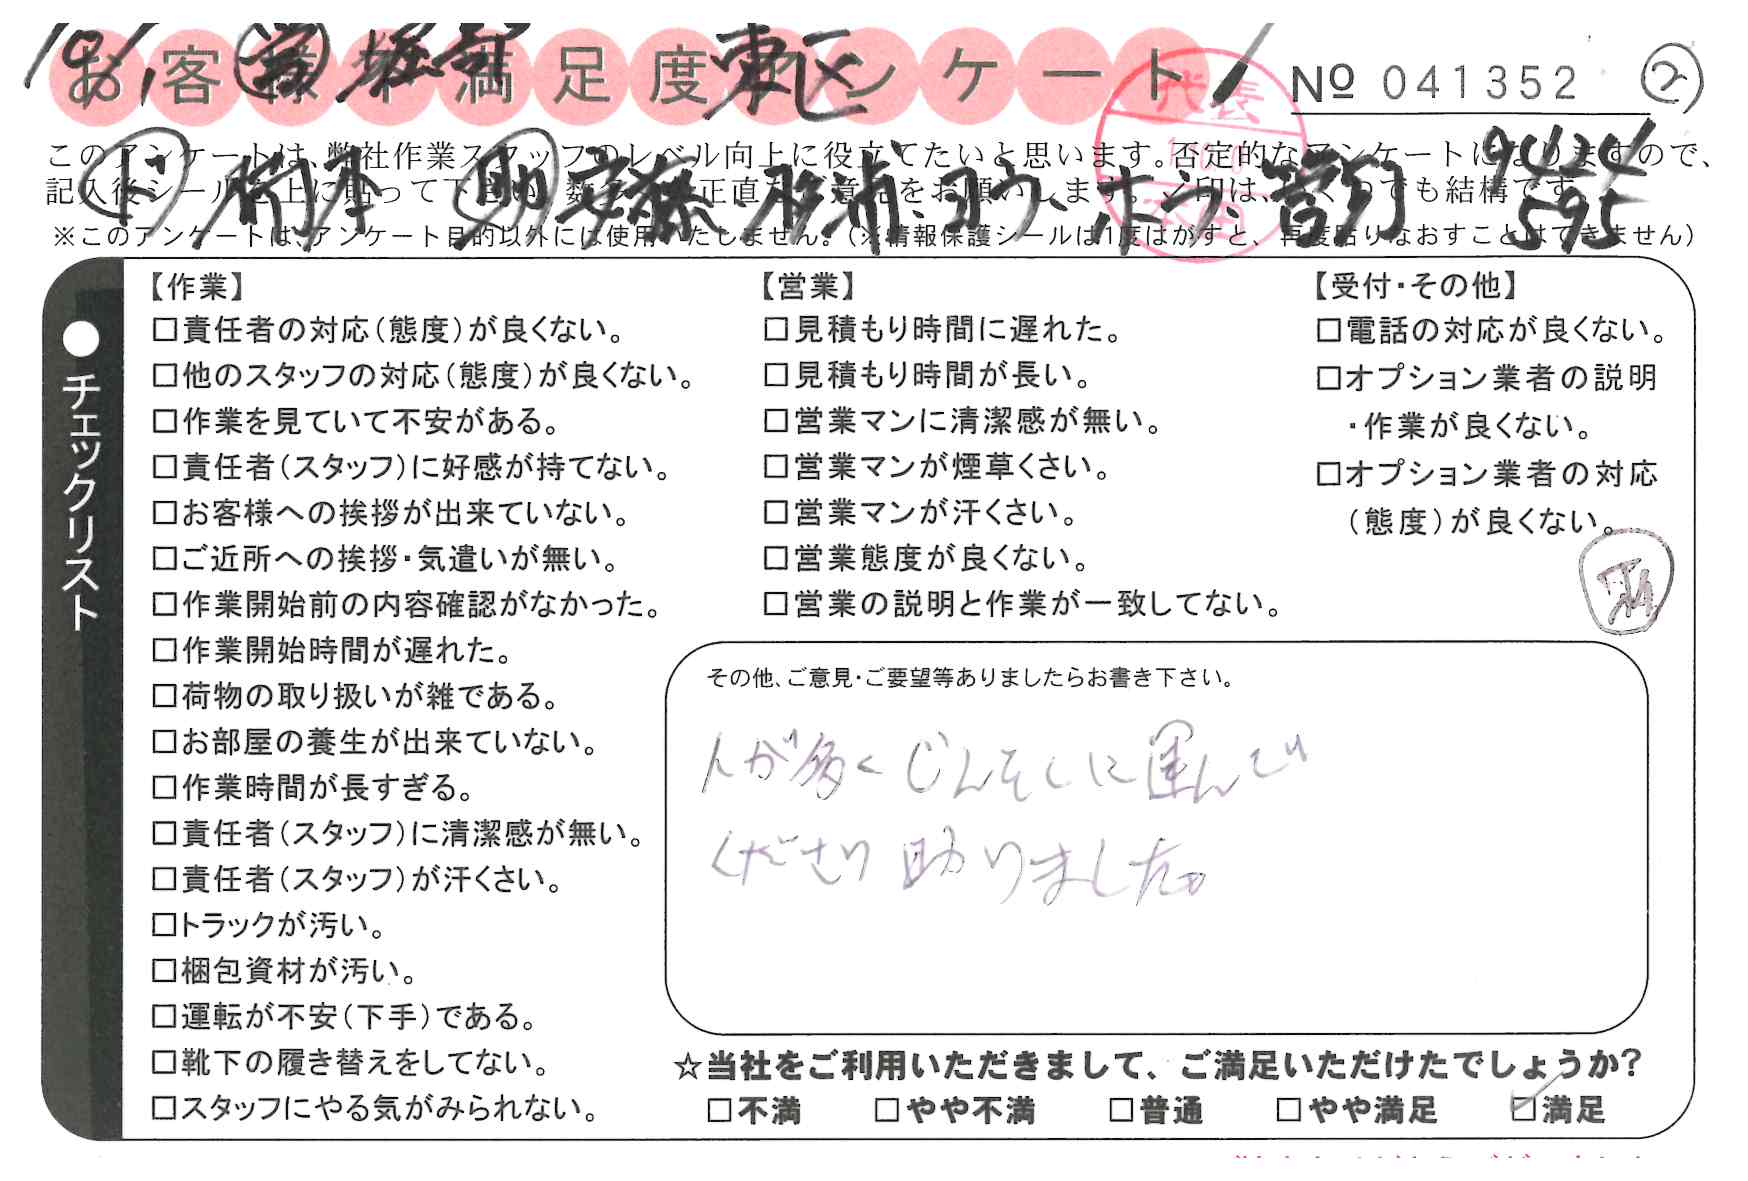 お客様不満足度アンケート
No 041352 ②
東区
このアンケートは、弊社作業スタッフのレベル向上に役立てたいと思います。否定的なアンケートになりますので、
記入後シールを上に貼って下さい。
正直なご意見をお願いします。
でも結構です。
※このアンケートは、アンケート目的以外には使用いたしません。（※情報保護シールは1度はがすと、再度貼りなおすことはできません）
595
●チェックリスト
【作業】
□責任者の対応（態度）が良くない。
□他のスタッフの対応（態度）が良くない。
□作業を見ていて不安がある。
□責任者（スタッフ）に好感が持てない。
□お客様への挨拶が出来ていない。
□ご近所への挨拶・気遣いが無い。
□作業開始前の内容確認がなかった。
□作業開始時間が遅れた。
□荷物の取り扱いが雑である。
□お部屋の養生が出来ていない。
□作業時間が長すぎる。
□責任者（スタッフ）に清潔感が無い。
□責任者（スタッフ）が汗くさい。
□トラックが汚い。
□梱包資材が汚い。
□運転が不安（下手）である。
□靴下の履き替えをしてない。
□スタッフにやる気がみられない。
【営業】
□見積もり時間に遅れた。
□見積もり時間が長い。
□営業マンに清潔感が無い。
□営業マンが煙草くさい。
□営業マンが汗くさい。
□営業態度が良くない。
□営業の説明と作業が一致してない。
【受付・その他】
□電話の対応が良くない。
□オプション業者の説明
・作業が良くない。
□オプション業者の対応
（態度）が良くない。
その他、ご意見・ご要望等ありましたらお書き下さい。
人が多くじんそくに運んで
くださり助りました。
☆当社をご利用いただきまして、ご満足いただけたでしょうか?
□不満 □やや不満 □普通 □やや満足 ☑満足